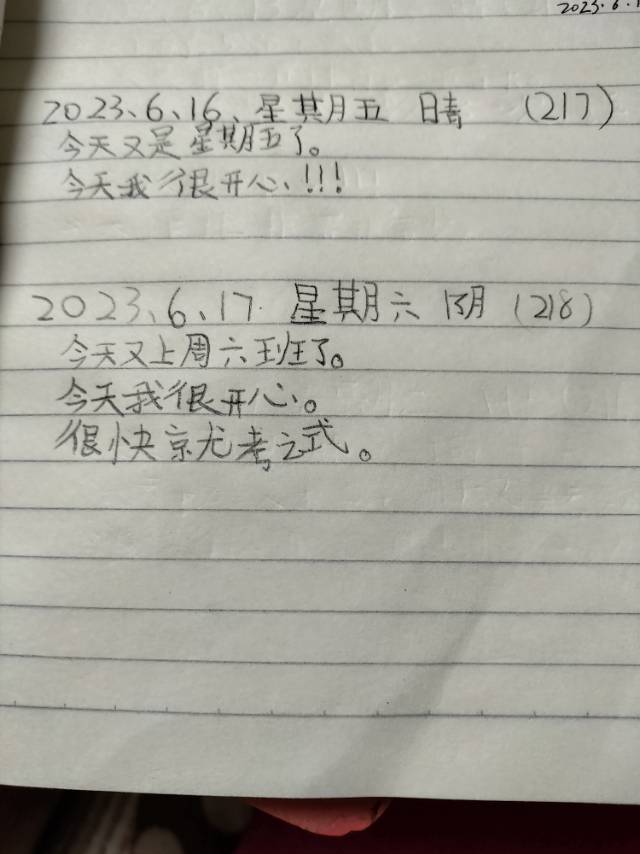 2023.6.1
2023、6、16、星期五 晴 (217)
今天又是星期五了。
今天我很开心、!!!
2023、6、17. 星期六 阴 (218)
今天又上周六班了。
今天我很开心、。
很快就考试。